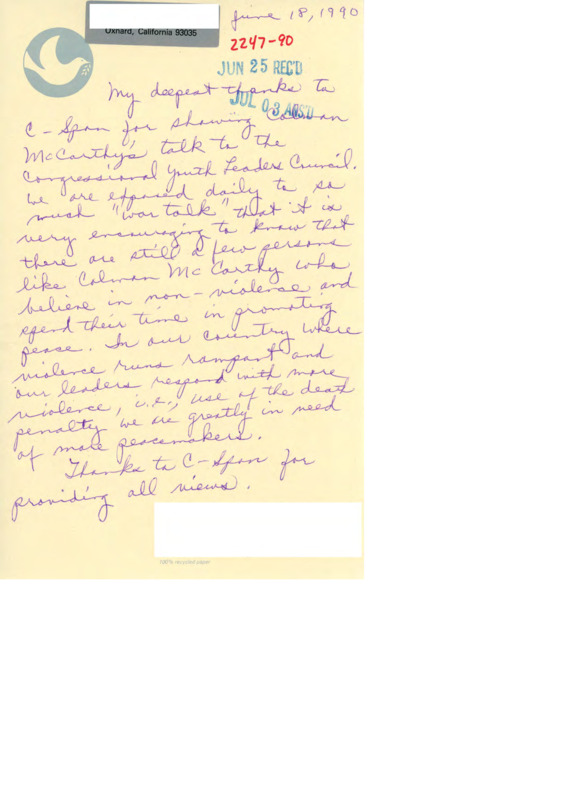 June 18, 1990
Oxnard, California 93035
2247-90
JUN 25 REC'D
JUL 03 ANS'D
My deepest thanks to
C-Span for showing Colman
McCarthy's talk to the
Congressional Youth Leaders Council.
We are exposed daily to so
much "war talk" that it is
very encouraging to know that
there are still a few persons
like Colman McCarthy who
believe in non-violence and
spend their time in promoting
peace. In our country where
violence runs rampant and
our leaders respond with more
violence, i.e., use of the death
penalty we are greatly in need
of more peacemakers.
Thanks to C-Span for
providing all views.
100% recycled paper